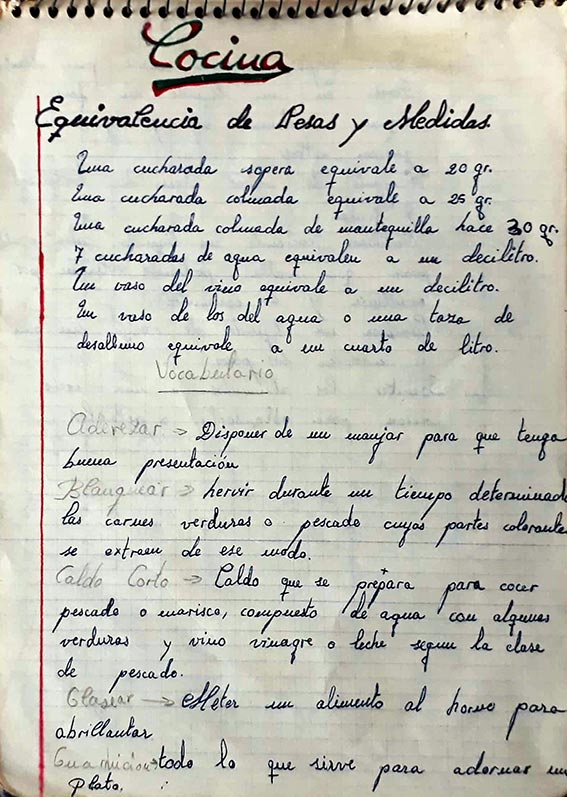 Cocina
Equivalencia de Pesas y Medidas.
Una cucharada sopera equivale a 20 gr.
Una cucharada colmada equivale a 25 gr.
Una cucharada colmada de mantequilla hace 30 gr.
7 cucharadas de agua equivalen a un decilitro.
Un vaso del vino equivale a un decilitro.
Un vaso de los del agua o una taza de
desalluno equivale a un cuarto de litro.
Vocabulario
Aderezar → Disponer de un manjar para que tenga
buena presentación
Blanquear → hervir durante un tiempo determinado
las carnes verduras o pescado cuyas partes colorantes
se extraen de ese modo.
Caldo Corto → Caldo que se prepara para cocer
pescado o marisco, compuesto de agua con algunas
verduras y vino vinagre o leche segun la clase
de pescado.
Glasear → Meter un alimento al horno para
abrillantar
Guarnicion → todo lo que sirve para adornar un
Plato.